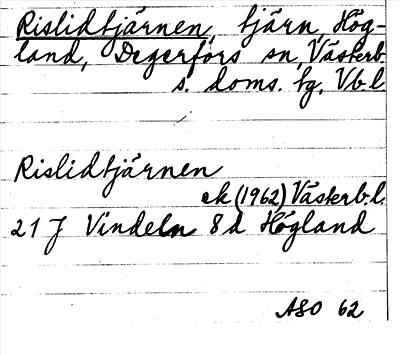 Rislidtjärnen, tjärn, Hög-
land, Degerfors sn, Västerb.
s. doms. fg, Vb.l
Rislidtjärnen
ek (1962) Västerb.l.
21 J Vindeln 8 d Högland
ASO 62